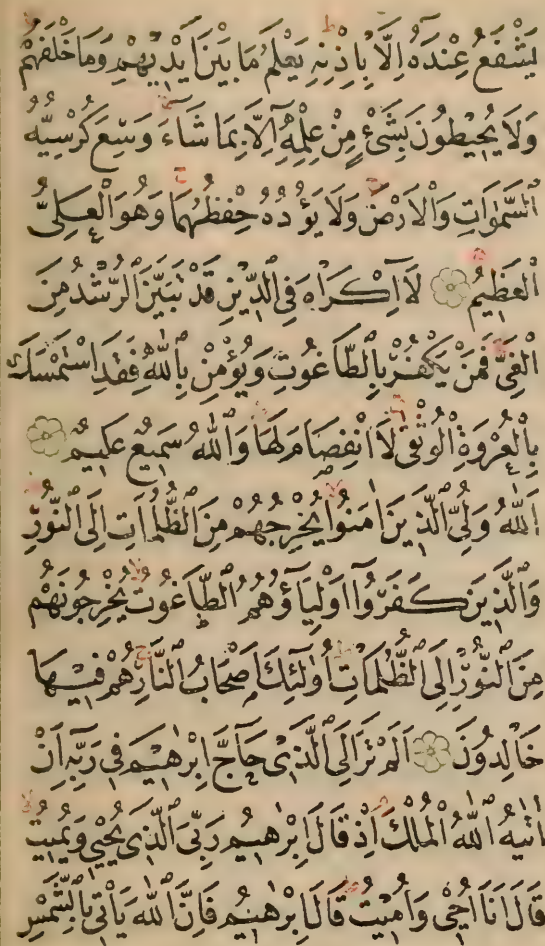 يَشْفَعُ عِنْدَهُ اِلَّا بِاِذْنِهِ يَعْلَمُ مَا بَيْنَ اَيْدِيهِمْ وَمَا خَلْفَهُمْ
وَلَا يُحِيطُونَ بِشَيْءٍ مِنْ عِلْمِهِ اِلَّا بِمَا شَاءَ وَسِعَ كُرْسِيُّهُ
السَّمٰوَاتِ وَالْاَرْضَ وَلَا يَؤُدُهُ حِفْظُهُمَا وَهُوَ الْعَلِىُّ
الْعَظِيمُ لَا اِكْرَاهَ فِى الدِّينِ قَدْ تَبَيَّنَ الرُّشْدُ مِنَ
الْغَىِّ فَمَنْ يَكْفُرْ بِالطَّاغُوتِ وَيُؤْمِنْ بِاللّٰهِ فَقَدِ اسْتَمْسَكَ
بِالْعُرْوَةِ الْوُثْقٰى لَا انْفِصَامَ لَهَا وَاللّٰهُ سَمِيعٌ عَلِيمٌ
اَللّٰهُ وَلِىُّ الَّذِينَ اٰمَنُوا يُخْرِجُهُمْ مِنَ الظُّلُمَاتِ اِلَى النُّورِ
وَالَّذِينَ كَفَرُوا اَوْلِيَاؤُهُمُ الطَّاغُوتُ يُخْرِجُونَهُمْ
مِنَ النُّورِ اِلَى الظُّلُمَاتِ اُولٰئِكَ اَصْحَابُ النَّارِ هُمْ فِيهَا
خَالِدُونَ اَلَمْ تَرَ اِلَى الَّذِى حَاجَّ اِبْرٰهِيمَ فِى رَبِّهِ اَنْ
اٰتٰيهُ اللّٰهُ الْمُلْكَ اِذْ قَالَ اِبْرٰهِيمُ رَبِّىَ الَّذِى يُحْيِى وَيُمِيتُ
قَالَ اَنَا اُحْيِى وَاُمِيتُ قَالَ اِبْرٰهِيمُ فَاِنَّ اللّٰهَ يَاْتِى بِالشَّمْسِ